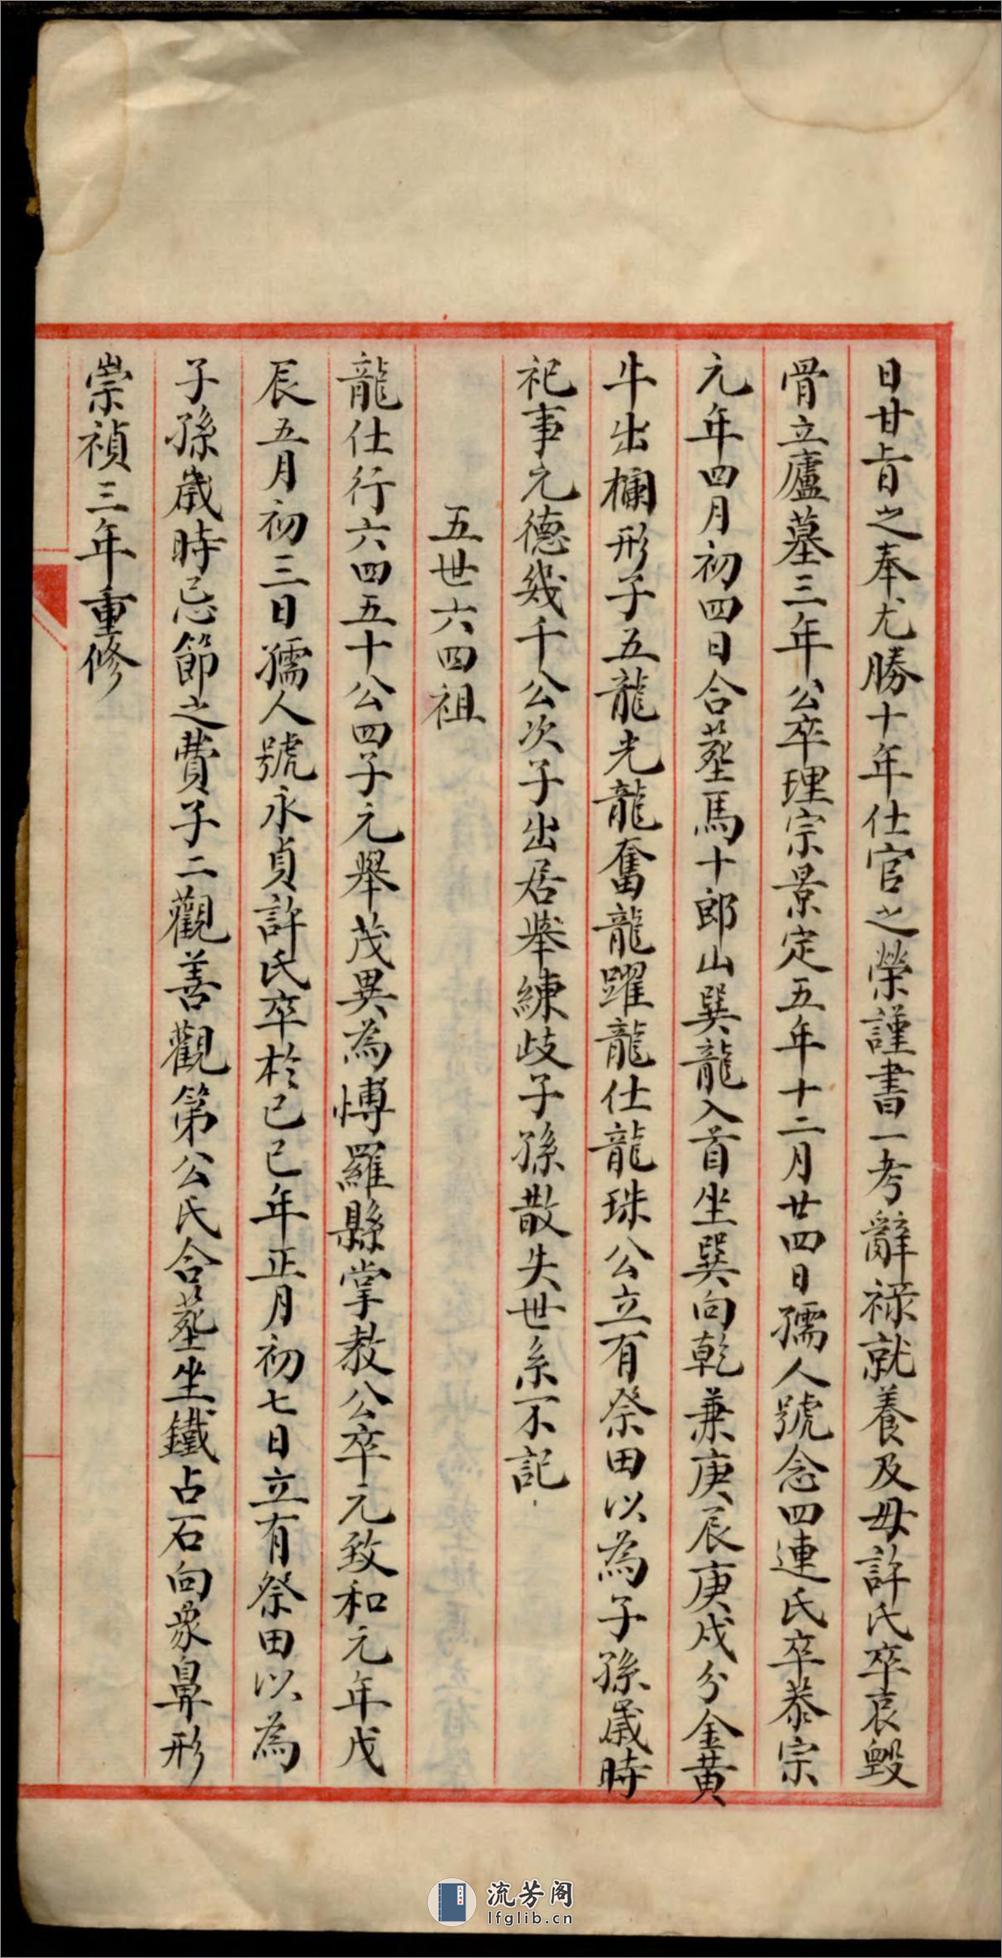 日甘旨之奉尤勝十年仕官之榮謹書一考辭祿就養及母許氏卒哀毀
骨立廬墓三年公卒理宗景定五年十二月廿四日孺人號念四連氏卒恭宗
元年四月初四日合塟馬十郎山巽龍入首坐巽向乾兼庚辰庚戌分金黃
牛出欄形子五龍光龍奮龍躍龍仕龍珠公立有祭田以為子孫歲時
祀事元德幾千公次子出居舉練歧子孫散失世系不記
五世六四祖
龍仕行六四五十公四子元舉茂異為愽羅縣掌教公卒元致和元年戊
辰五月初三日孺人號永貞許氏卒於己巳年正月初七日立有祭田以為
子孫歲時忌節之費子二觀善觀第公氏合塟坐鐵占石向象鼻形
崇禎三年重修
流芳阁
lfglib.cn